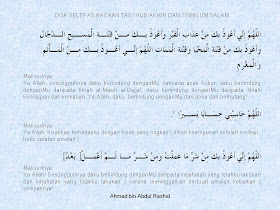 DOA SELEPAS BACAAN TASYHUD AKHIR DAN SEBELUM SALAM
اللَّهُمَّ إِنِّي أَعُوذُ بِكَ مِنْ عَذَابِ الْقَبْرِ وَأَعُوذُ بِكَ مِنْ فِتْنَةِ الْمَسِيحِ الدَّجَّالِ
وَأَعُوذُ بِكَ مِنْ فِتْنَةِ الْمَحْيَا وَفِتْنَةِ الْمَمَاتِ اللَّهُمَّ إِنِّي أَعُوذُ بِكَ مِنْ الْمَأْثَمِ
وَالْمَغْرَمِ
Maksudnya:
Ya Allah, sesungguhnya daku berlindung denganMu daripada azab kubur, daku berlindung
denganMu daripada fitnah al-Masih al-Dajjal, daku berlindung denganMu daripada fitnah
kehidupan dan kematian. Ya Allah, daku berlindung denganMu dari dosa dan berhutang!
اللَّهُمَّ حَاسِبْنِي حِسَابًا يَسِيرًا
Maksudnya:
Ya Allah, hisablah terhadapku dengan hisab yang ringkas (diberi keampunan setelah melihat
buku catatan amalan)
اللَّهُمَّ إِنِّي أَعُوذُ بِكَ مِنْ شَرِّ مَا عَمِلْتُ وَمِنْ شَرِّ مَا لَمْ أَعْمَلْ [بَعْدُ]
Maksudnya:
Ya Allah! Sesungguhnya daku berlindung denganMu daripada kejahatan yang telah daku lakukan
dan kejahatan yang tidak daku lakukan (kerana meninggalkan berbuat amalan kebaikan)
selepasnya!
Ahmad bin Abdul Rashid